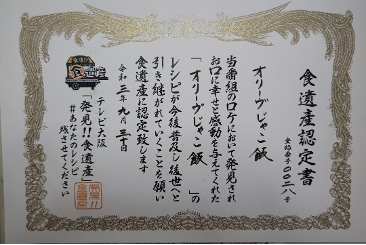 食遺産認定書
登録番号 〇〇二八号
オリーヴじゃこ飯
当番組のロケにおいて発見され
お口に幸せと感動を与えてくれた
「オリーヴじゃこ飯」の
レシピが今後普及し後世へと
引き継がれていくことを願い
食遺産に認定致します
令和三年九月三十日
テレビ大阪
「発見!!食遺産」
#あなたのレシピ
残させてください